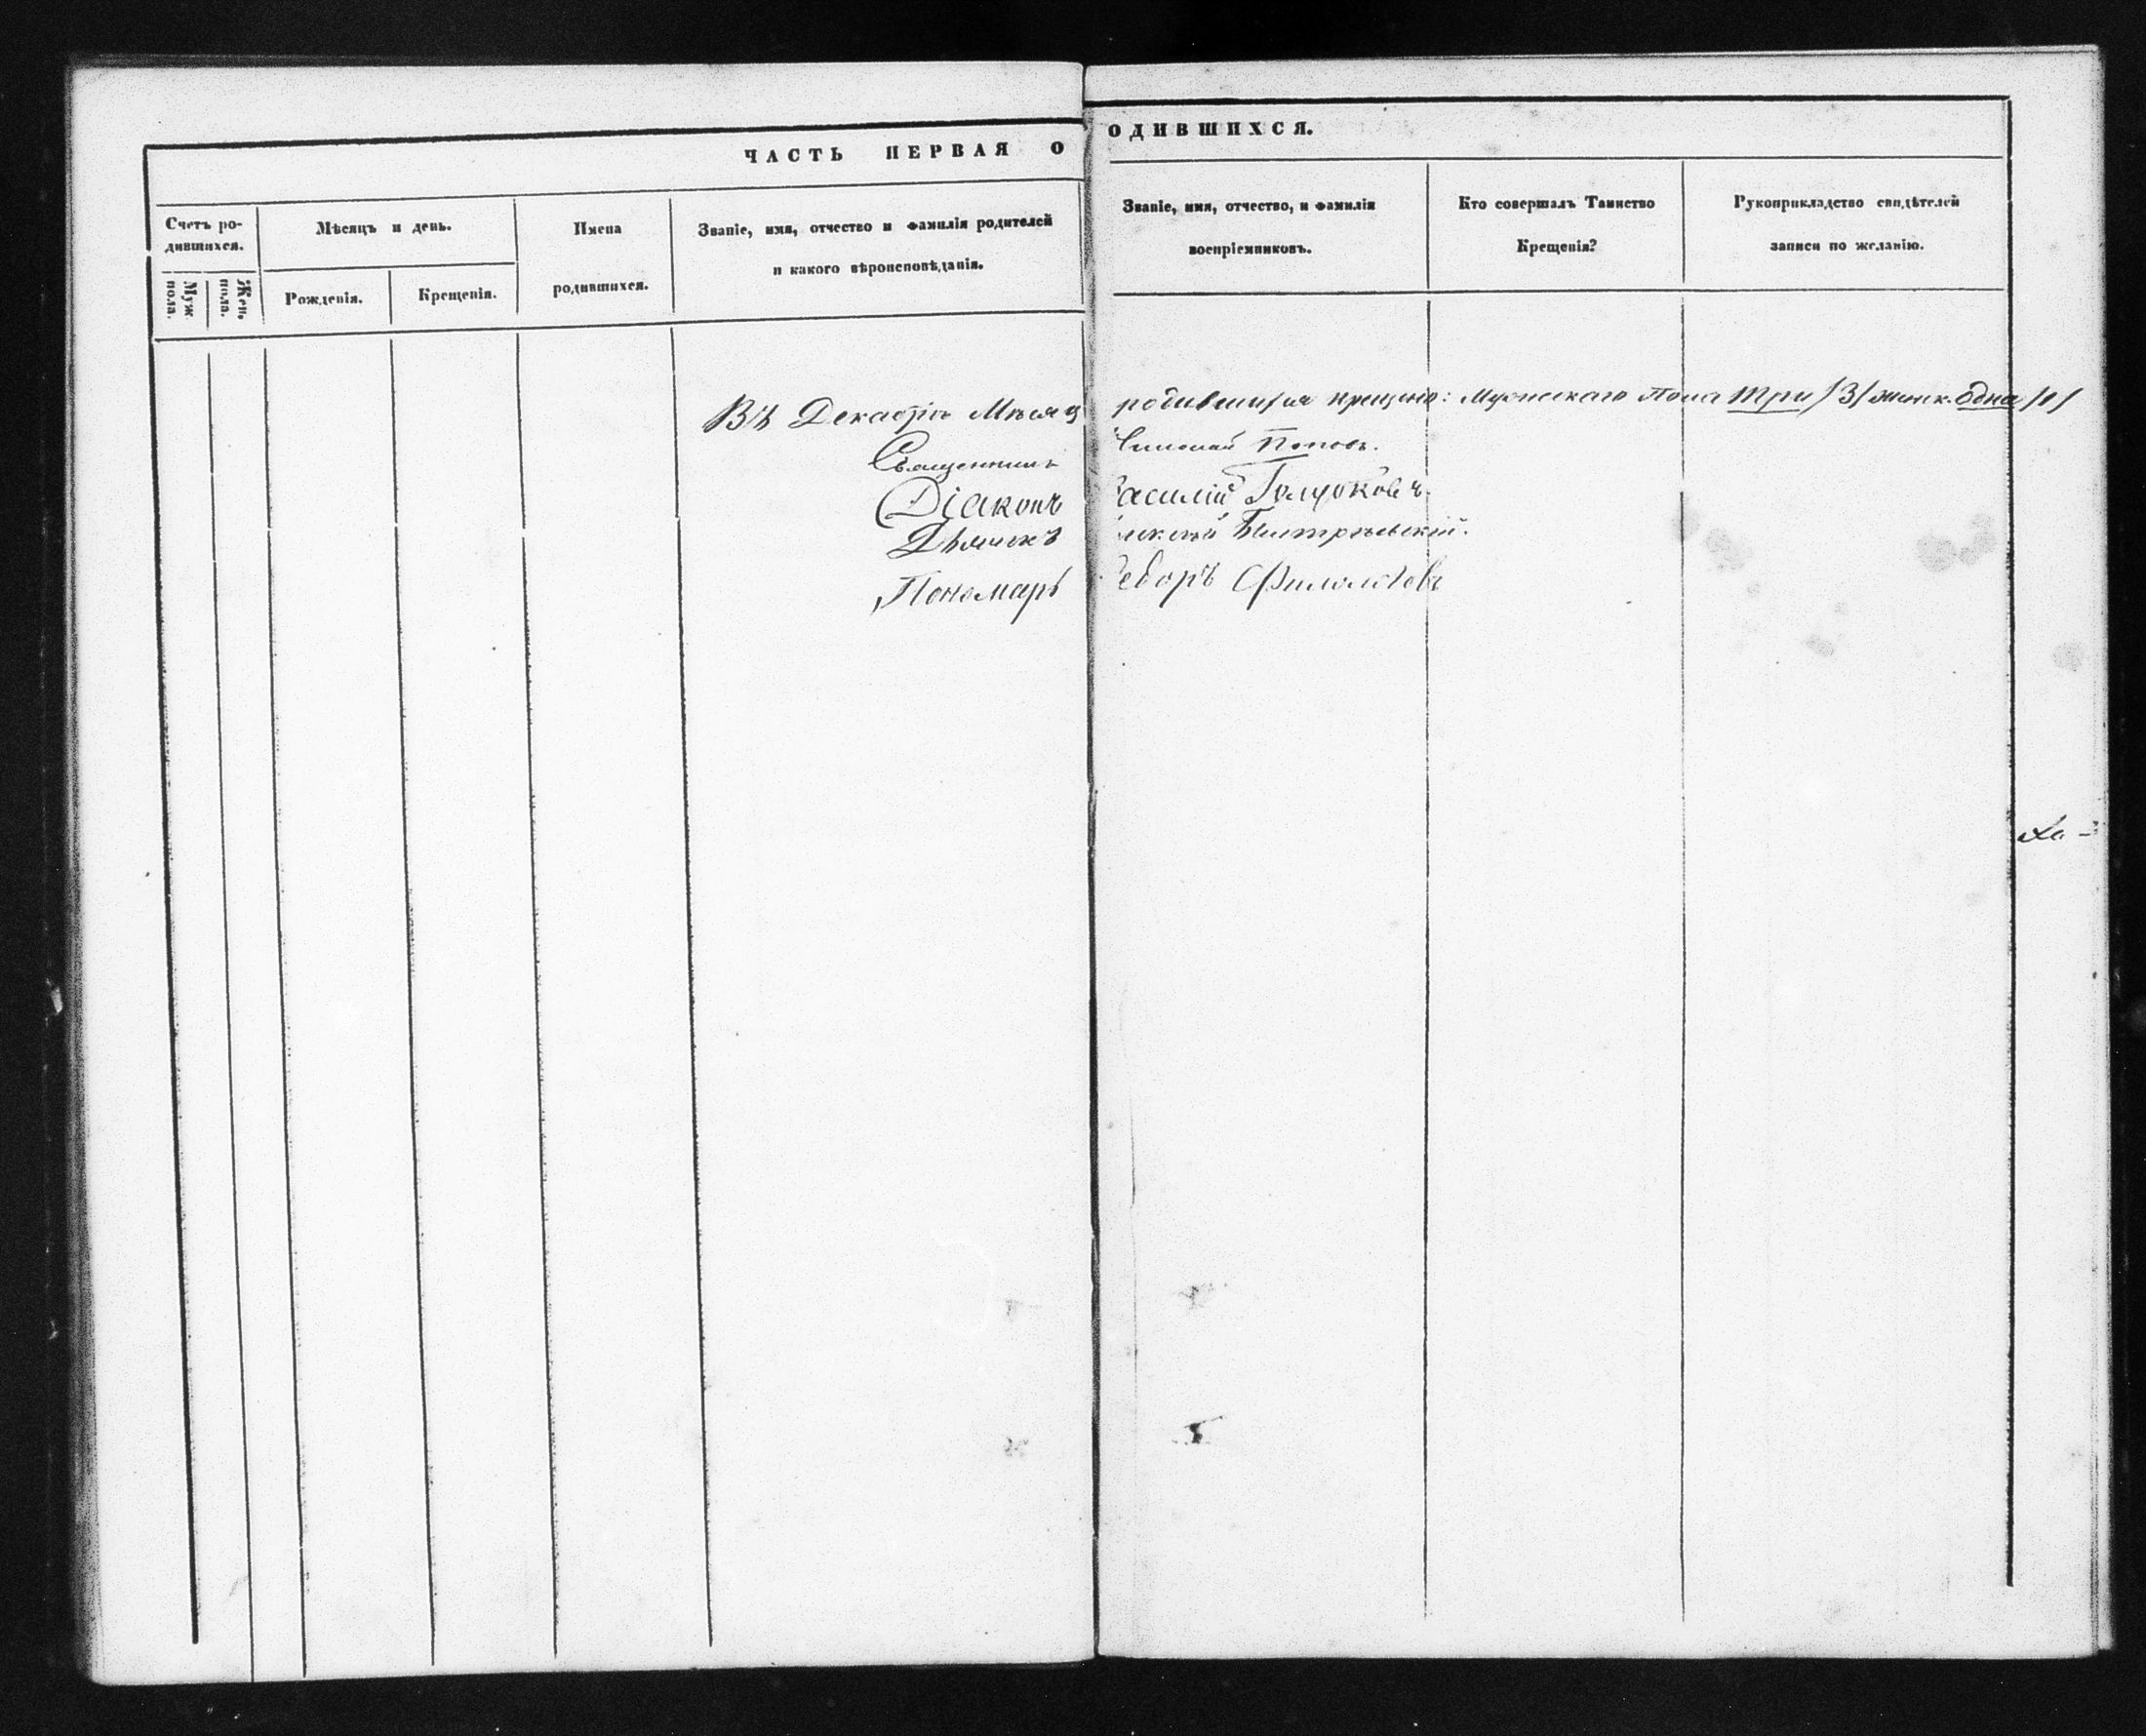 ЧАСТЬ ПЕРВАЯ О
Счетъ ро-
дившихся.
Муж. пола.
Жен. пола.
Мѣсяцъ и день.
Рожденія.
Крещенія.
Имена
родившихся.
Званіе, имя, отчество и фамилія родителей
и какого вѣроисповѣданія.
Въ Декабрѣ Мѣсяц
Священникъ
Діаконъ
Дьячекъ
Пономарь
ОДИВШИХСЯ.
Званіе, имя, отчество, и фамилія
воспріемниковъ.
Кто совершалъ Таинство
Крещенія?
Рукоприкладство свидѣтелей
записи по желанію.
родившихся крещено: Мужескаго Пола Три /3/ женск. Одна /1/
Поповъ.
асилій
едоръ Филолотовъ